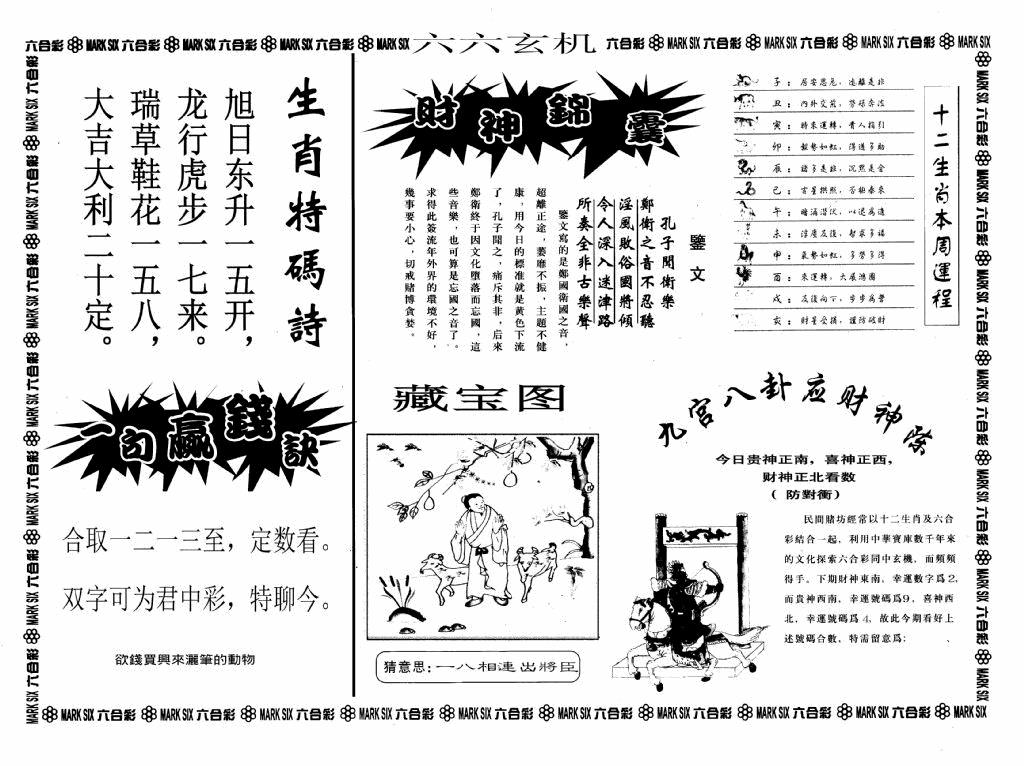 六六玄机
六合彩 MARK SIX 六合彩 MARK SIX 六合彩 MARK SIX 六合彩 MARK SIX
六合彩 MARK SIX 六合彩 MARK SIX 六合彩 MARK SIX 六合彩 MARK SIX
生肖特碼詩
旭日东升一五开，
龙行虎步一七来。
瑞草鞋花一五八，
大吉大利二十定。
一句贏錢訣
合取一二一三至，定数看。
双字可为君中彩，特聊今。
欲錢買興來灑筆的動物
財神錦囊
鑒文
孔子聞衛樂
鄭衛之音不忍聽
淫風敗俗國將傾
令人深入迷津路
所奏全非古樂聲
鑒文寫的是鄭國衛國之音，
超離正途，萎靡不振，主題不健
康，用今日的標准就是黄色下流
了，孔子聞之，痛斥其非，后來
鄭衛終于因文化墮落而忘國，這
些音樂，也可算是忘國之音了。
求得此簽流年外界的環境不好，
幾事要小心，切戒賭博貪婪。
十二生肖本周運程
子：居安思危，遠離是非
丑：内外交荒，勞碌奔波
寅：時來運轉，貴人指引
卯：氣勢如虹，得道多助
辰：諸多是非，沉默是金
巳：吉星拱照，否極泰來
午：暗涌潜伏，以退為進
申：氣勢如虹，多勞多得
酉：來運轉，大展鴻圖
亥：財星受損，謹防破財
藏宝图
猜意思：一八相連出將臣
九宫八卦应财神除
今日贵神正南，喜神正西，
财神正北看数
（防對衝）
民間賭坊經常以十二生肖及六合
彩結合一起，利用中華寶庫數千年來
的文化探索六合彩同中玄機，而頻頻
得手。下期財神東南，幸運數字爲2，
而貴神西南，幸運號碼爲9，喜神西
北，幸運號碼爲4，故此今期看好上
述號碼合數，特需留意爲：
MARK SIX 六合彩 MARK SIX 六合彩 MARK SIX 六合彩 MARK SIX 六合彩 MARK SIX 六合彩 MARK SIX 六合彩 MARK SIX 六合彩 MARK SIX 六合彩 MARK SIX 六合彩 MARK SIX